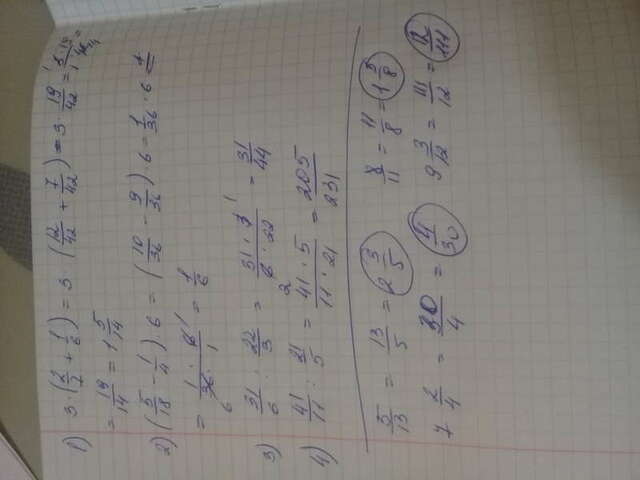 1) 3·(2/7 + 1/6) = 3·(12/42 + 7/42) = 3·19/42 = 
= 19/14 = 1 5/14
2) (5/18 − 1/4)·6 = (10/36 − 9/36)·6 = 1/36·6 =
= 1·6/36·1 = 1/6
3) 31/6 : 22/3 = 31·3/6·22 = 31/44
4) 41/11 : 21/5 = 41·5/11·21 = 205/231
5/13 = 13/5 = 2 3/5
8/11 = 11/8 = 1 3/8
7 2/4 = 30/4 = 4/30
9 3/12 = 111/12 = 12/111